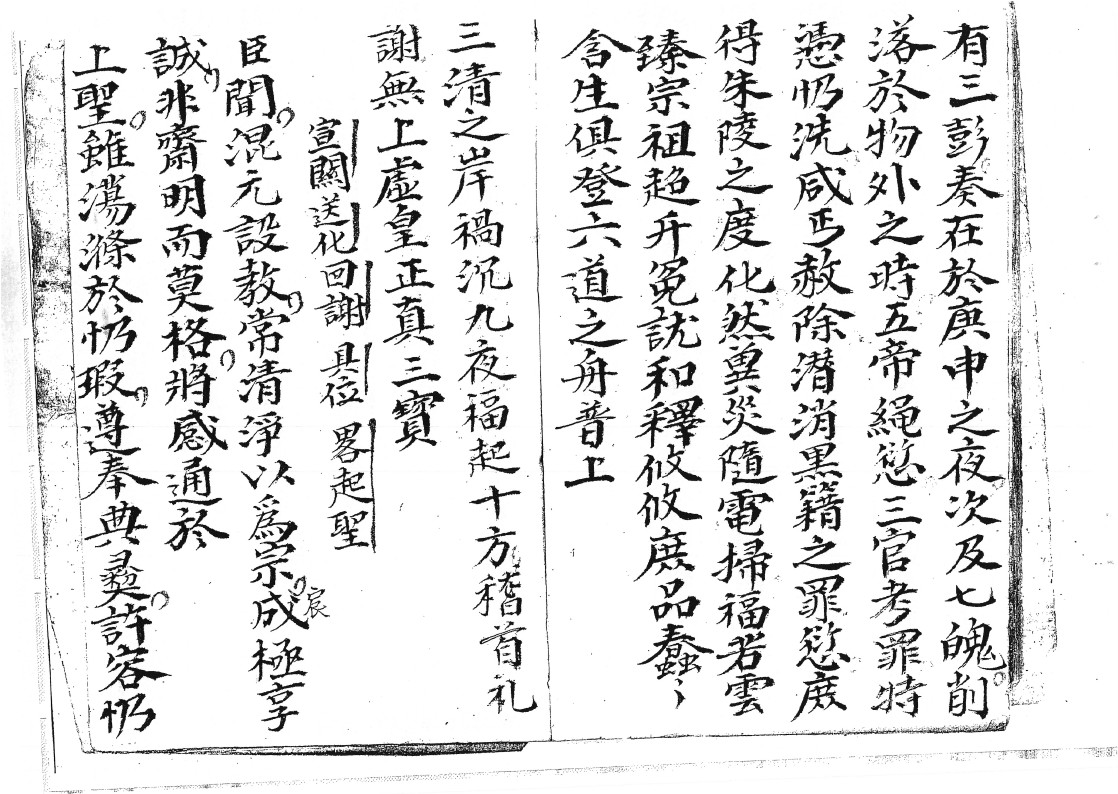 有三彭奏在於庚申之夜次及七魄削
落於物外之時五帝繩愆三官考罪特
憑忉洗咸丐赦除潛消黑籍之罪愆庶
得朱陵之度化然兾災隨電掃福若雲
臻宗祖超升冤訧和釋攸攸庶品蠢〻
含生俱登六道之舟普上
三清之岸禍沉九夜福起十方稽首礼
謝無上虛皇正真三寶
宣關送化回謝 具位 畧起聖
臣聞混元設教常清淨以爲宗成極享
宸
誠非齋明而莫格將感通於
上聖雖蕩滌於忉瑕遵奉典彞許容忉